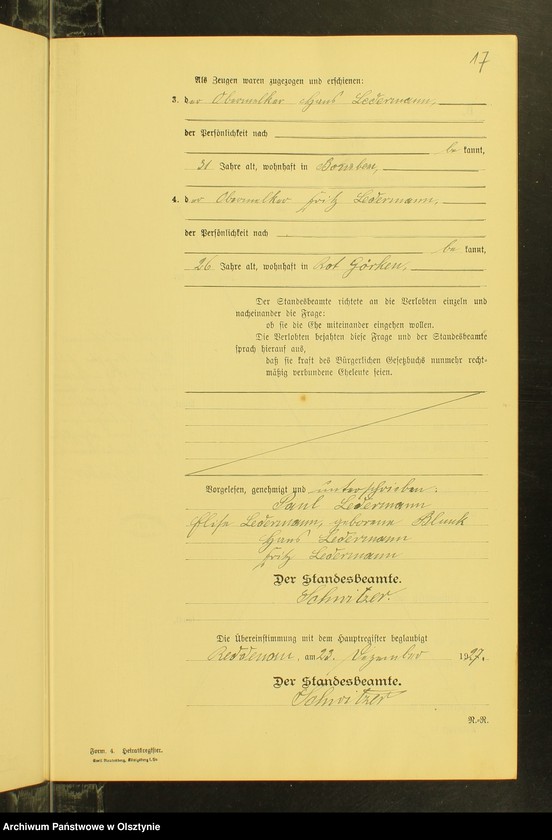 17
Als Zeugen waren zugezogen und erschienen:
3. der Obermelker Hans Ledermann,
der Persönlichkeit nach
be kannt,
31 Jahre alt, wohnhaft in
4. der Obermelker Fritz Ledermann,
der Persönlichkeit nach
be kannt,
26 Jahre alt, wohnhaft in Rot Görken,
Der Standesbeamte richtete an die Verlobten einzeln und
nacheinander die Frage:
ob sie die Ehe miteinander eingehen wollen.
Die Verlobten bejahten diese Frage und der Standesbeamte
sprach hierauf aus,
daß sie kraft des Bürgerlichen Gesetzbuchs nunmehr recht-
mäßig verbundene Eheleute seien.
Vorgelesen, genehmigt und unterschrieben:
Paul Ledermann
Elise Ledermann, geborene Blunk
Hans Ledermann
Fritz Ledermann
Der Standesbeamte.
Schnitzer.
Die Übereinstimmung mit dem Hauptregister beglaubigt
Reddenau, am 23. Dezember 1927.
Der Standesbeamte.
Schnitzer
R.-R.
Form. 4. Heiratsregister.
Königsberg i. Pr.
Archiwum Państwowe w Olsztynie